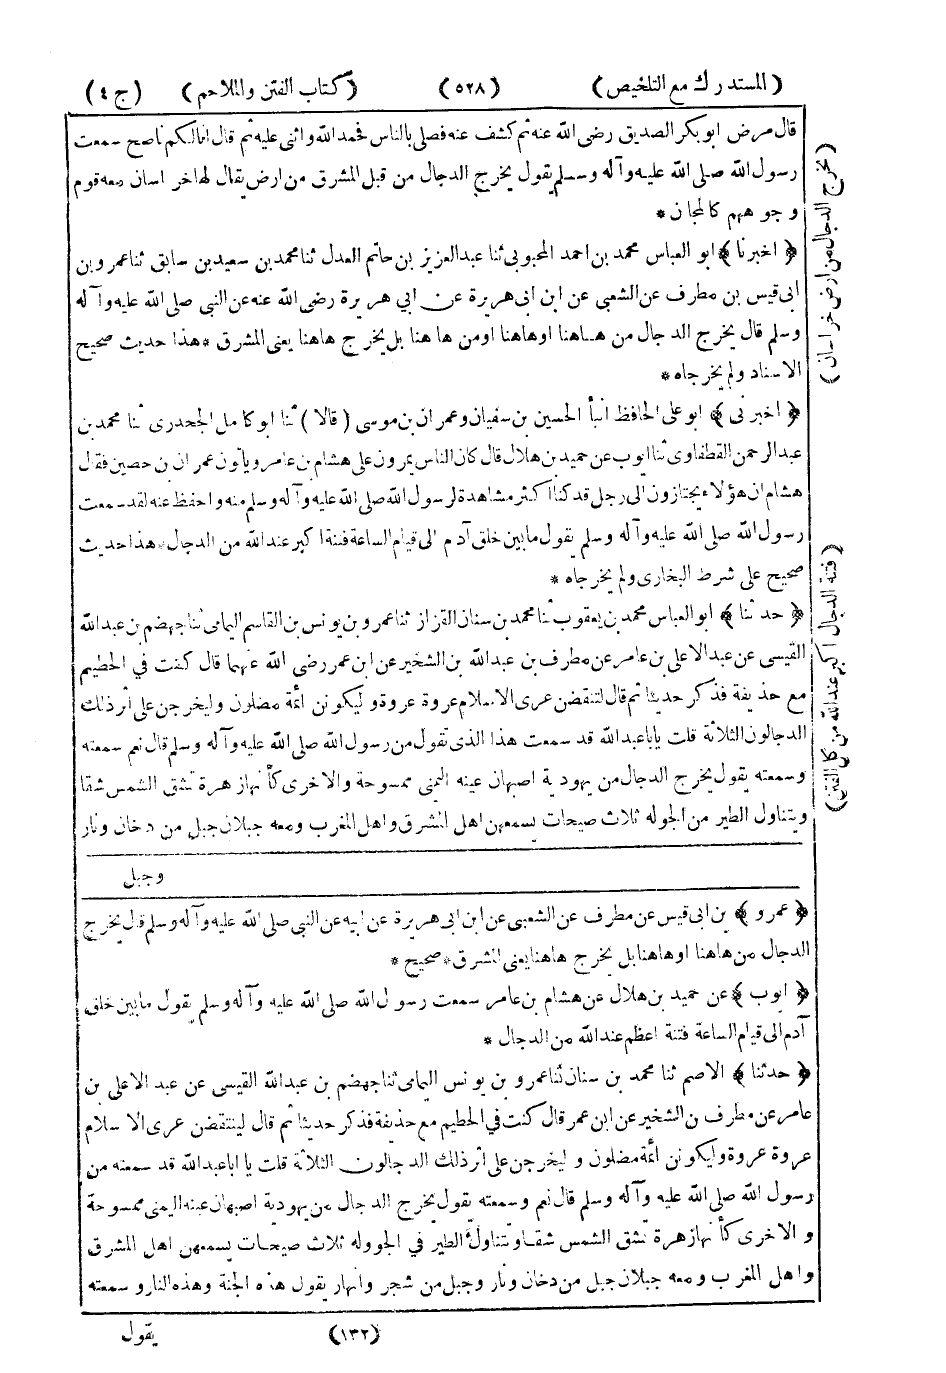 (المستدرك مع التلخيص) (٥٢٨) (كتاب الفتن والملاحم) (ج ٤)
قال مرض ابو بكر الصديق رضى الله عنه ثم كشف عنه فصلى بالناس فحمد الله واثنى عليه ثم قال انا لكم ناصح سمعت
رسول الله صلى الله عليه وآله وسلم يقول يخرج الدجال من قبل المشرق من ارض يقال لها خر اسان معه قوم
وجوههم كالمجان *
﴿ اخبرنا ﴾ ابو العباس محمد بن احمد المحبوبى ثنا عبد العزيز بن حاتم العدل ثنا محمد بن سعيد بن سابق ثنا عمرو بن
ابى قيس بن مطرف عن الشعبى عن ابن ابى هريرة عن ابى هريرة رضى الله عنه عن النبى صلى الله عليه وآله
وسلم قال يخرج الدجال من هاهنا اوهاهنا اومن هاهنا بل يخرج هاهنا يعنى المشرق * هذا حديث صحيح
الاسناد ولم يخرجاه *
﴿ اخبرنى ﴾ ابو على الحافظ انبأ الحسين بن سفيان وعمران بن موسى (قالا) ثنا ابو كامل الجحدرى ثنا محمد بن
عبد الرحمن القطفاوى ثنا ايوب عن حميد بن هلال قال كان الناس يمرون على هشام بن عامر ويأتون عمران بن حصين فقال
هشام ان هؤلاء يجتازون الى رجل قد كنا اكثر مشاهدة لرسول الله صلى الله عليه وآله وسلم منه واحفظ عنه لقد سمعت
رسول الله صلى الله عليه وآله وسلم يقول ما بين خلق آدم الى قيام الساعة فتنة اكبر عند الله من الدجال * هذا حديث
صحيح على شرط البخارى ولم يخرجاه *
﴿ حدثنا ﴾ ابو العباس محمد بن يعقوب ثنا محمد بن سنان القزاز ثنا عمرو بن يونس بن القاسم اليمامى ثنا جهضم بن عبد الله
القيسى عن عبد الاعلى بن عامر عن مطرف بن عبد الله بن الشخير عن ابن عمر رضى الله عنهما قال كنت في الحطيم
مع حذيفة فذكر حديثا ثم قال لتنقضن عرى الاسلام عروة عروة وليكونن ائمة مضلون وليخرجن على أثر ذلك
الدجالون الثلاثة قلت يا ابا عبد الله قد سمعت هذا الذى تقول من رسول الله صلى الله عليه وآله وسلم قال نعم سمعته
وسمعته يقول يخرج الدجال من يهودية اصبهان عينه اليمنى ممسوحة والاخرى كأنها زهرة تشق الشمس شقا
ويتناول الطير من الجو له ثلاث صيحات يسمعهن اهل المشرق واهل المغرب ومعه جبلان جبل من دخان ونار
وجبل
﴿ عمرو ﴾ بن ابى قيس عن مطرف عن الشعبى عن ابن ابى هريرة عن ابيه عن النبى صلى الله عليه وآله وسلم قال يخرج
الدجال من هاهنا اوهاهنا بل يخرج هاهنا يعنى المشرق * صحيح *
﴿ ايوب ﴾ عن حميد بن هلال عن هشام بن عامر سمعت رسول الله صلى الله عليه وآله وسلم يقول ما بين خلق
آدم الى قيام الساعة فتنة اعظم عند الله من الدجال *
﴿ حدثنا ﴾ الاصم ثنا محمد بن سنان ثنا عمرو بن يونس اليمامى ثنا جهضم بن عبد الله القيسى عن عبد الاعلى بن
عامر عن مطرف بن الشخير عن ابن عمر قال كنت في الحطيم مع حذيفة فذكر حديثا ثم قال لينتقضن عرى الاسلام
عروة عروة وليكونن ائمة مضلون وليخرجن على اثر ذلك الدجالون الثلاثة قلت يا ابا عبد الله قد سمعته من
رسول الله صلى الله عليه وآله وسلم قال نعم وسمعته يقول يخرج الدجال من يهودية اصبهان عينه اليمنى ممسوحة
والاخرى كأنها زهرة تشق الشمس شقا ويتناول الطير في الجو وله ثلاث صيحات يسمعهن اهل المشرق
واهل المغرب ومعه جبلان جبل من دخان ونار وجبل من شجر وانهار يقول هذه الجنة وهذه النار وسمعته
(١٣٢) يقول
(يخرج الدجال من ارض خراسان)
(فتنة الدجال اكبر عند الله من كل الفتن)